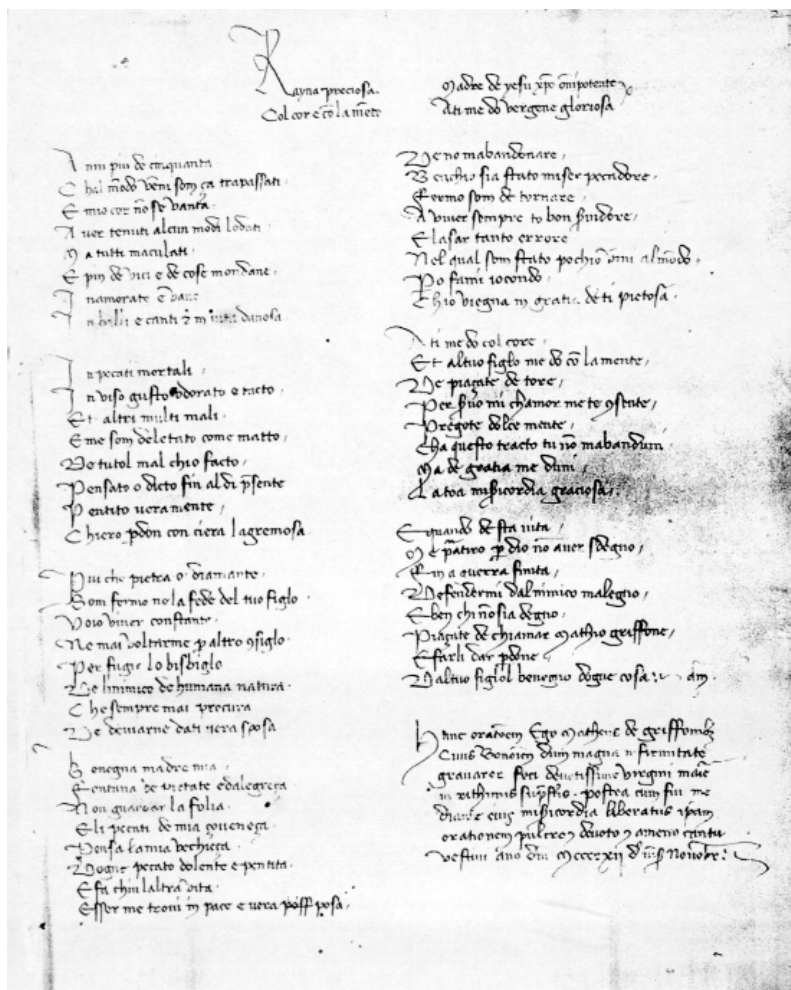 Rayna preciosa.
Col core cō la mēte
Madre de yesu xpo omīpotente
A ti me dō vergene gloriosa
Anni piu de cinquanta
C hal mōdo vēni som ça trapassati
E mio cor nō se vanta
A uer tenuti alcun modi lodati
Ma tutti maculati
E pin de vici e de cose mondane
Inamorate e vane
In balli e canti z in uita danosa
In pecati mortali
In viso gusto odorato e tacto
Et altri multi mali
E me som deletato come matto
De tutol mal chio facto
Pensato o dicto fin al di p̄sente
Pentito ueramente
Chiero pdon con ciera lagremosa
Piu che pietra o diamante
Som fermo ne la fede del tuo figlo
Voio viver constante
Ne mai voltarme p altro 9siglo
Per fugir lo bisbiglo
De linimico de humana natura
Che sempre mai procura
De deuiarne da ti uera sposa
Sonegna madre mia
Fontana de pietate e dalegreça
Non guardar la folia
E li pecati de mia çoueneça
Pensa la mia vechieça
Dogne pecato dolente e pentita
E fa chin laltra vita
Esser me trovi in pace e vera posa
De no mabandonare
Benchio sia stato miser peccadore
Fermo som de tornare
A viver sempre to bon seruidore
E lasar tanto errore
Nel qual som stato pochio vēni al mōdo
Po fami iocondo
Chio viegna in gratia de ti pietosa
A ti me dō col core
Et al tuo figlo me dō cō la mente
De piaçate de tore
Per seruo mi chamor me te 9sente
Pregote dolce mente
Cha questo tracto tu nō mabanduni
Ma de gratia me duni
La toa misicordia graciosa
E quando de sta uita
Me partiro p dio nō aver sdegno
Fin a guerra finita
Defendermi dal inimico malegno
E ben chi nō sia degno
Piaçate de chiamar Mathio griffone
E farli dar pdone
Dal tuo figlol benegno dogne cosa am
Hanc oratōem Ego Matheus de griffonib;
Ciuis Bonōien dum magna infirmitate
grauarer feci deuotissime virgini marie
in rithimis suprascriptis. postea cum fui me
diante eius misicordia liberatus ipam
orationem pulcro deuoto z ameno cantu
vestiui ano dm̄ Mccccxii de mēs Nouēbr